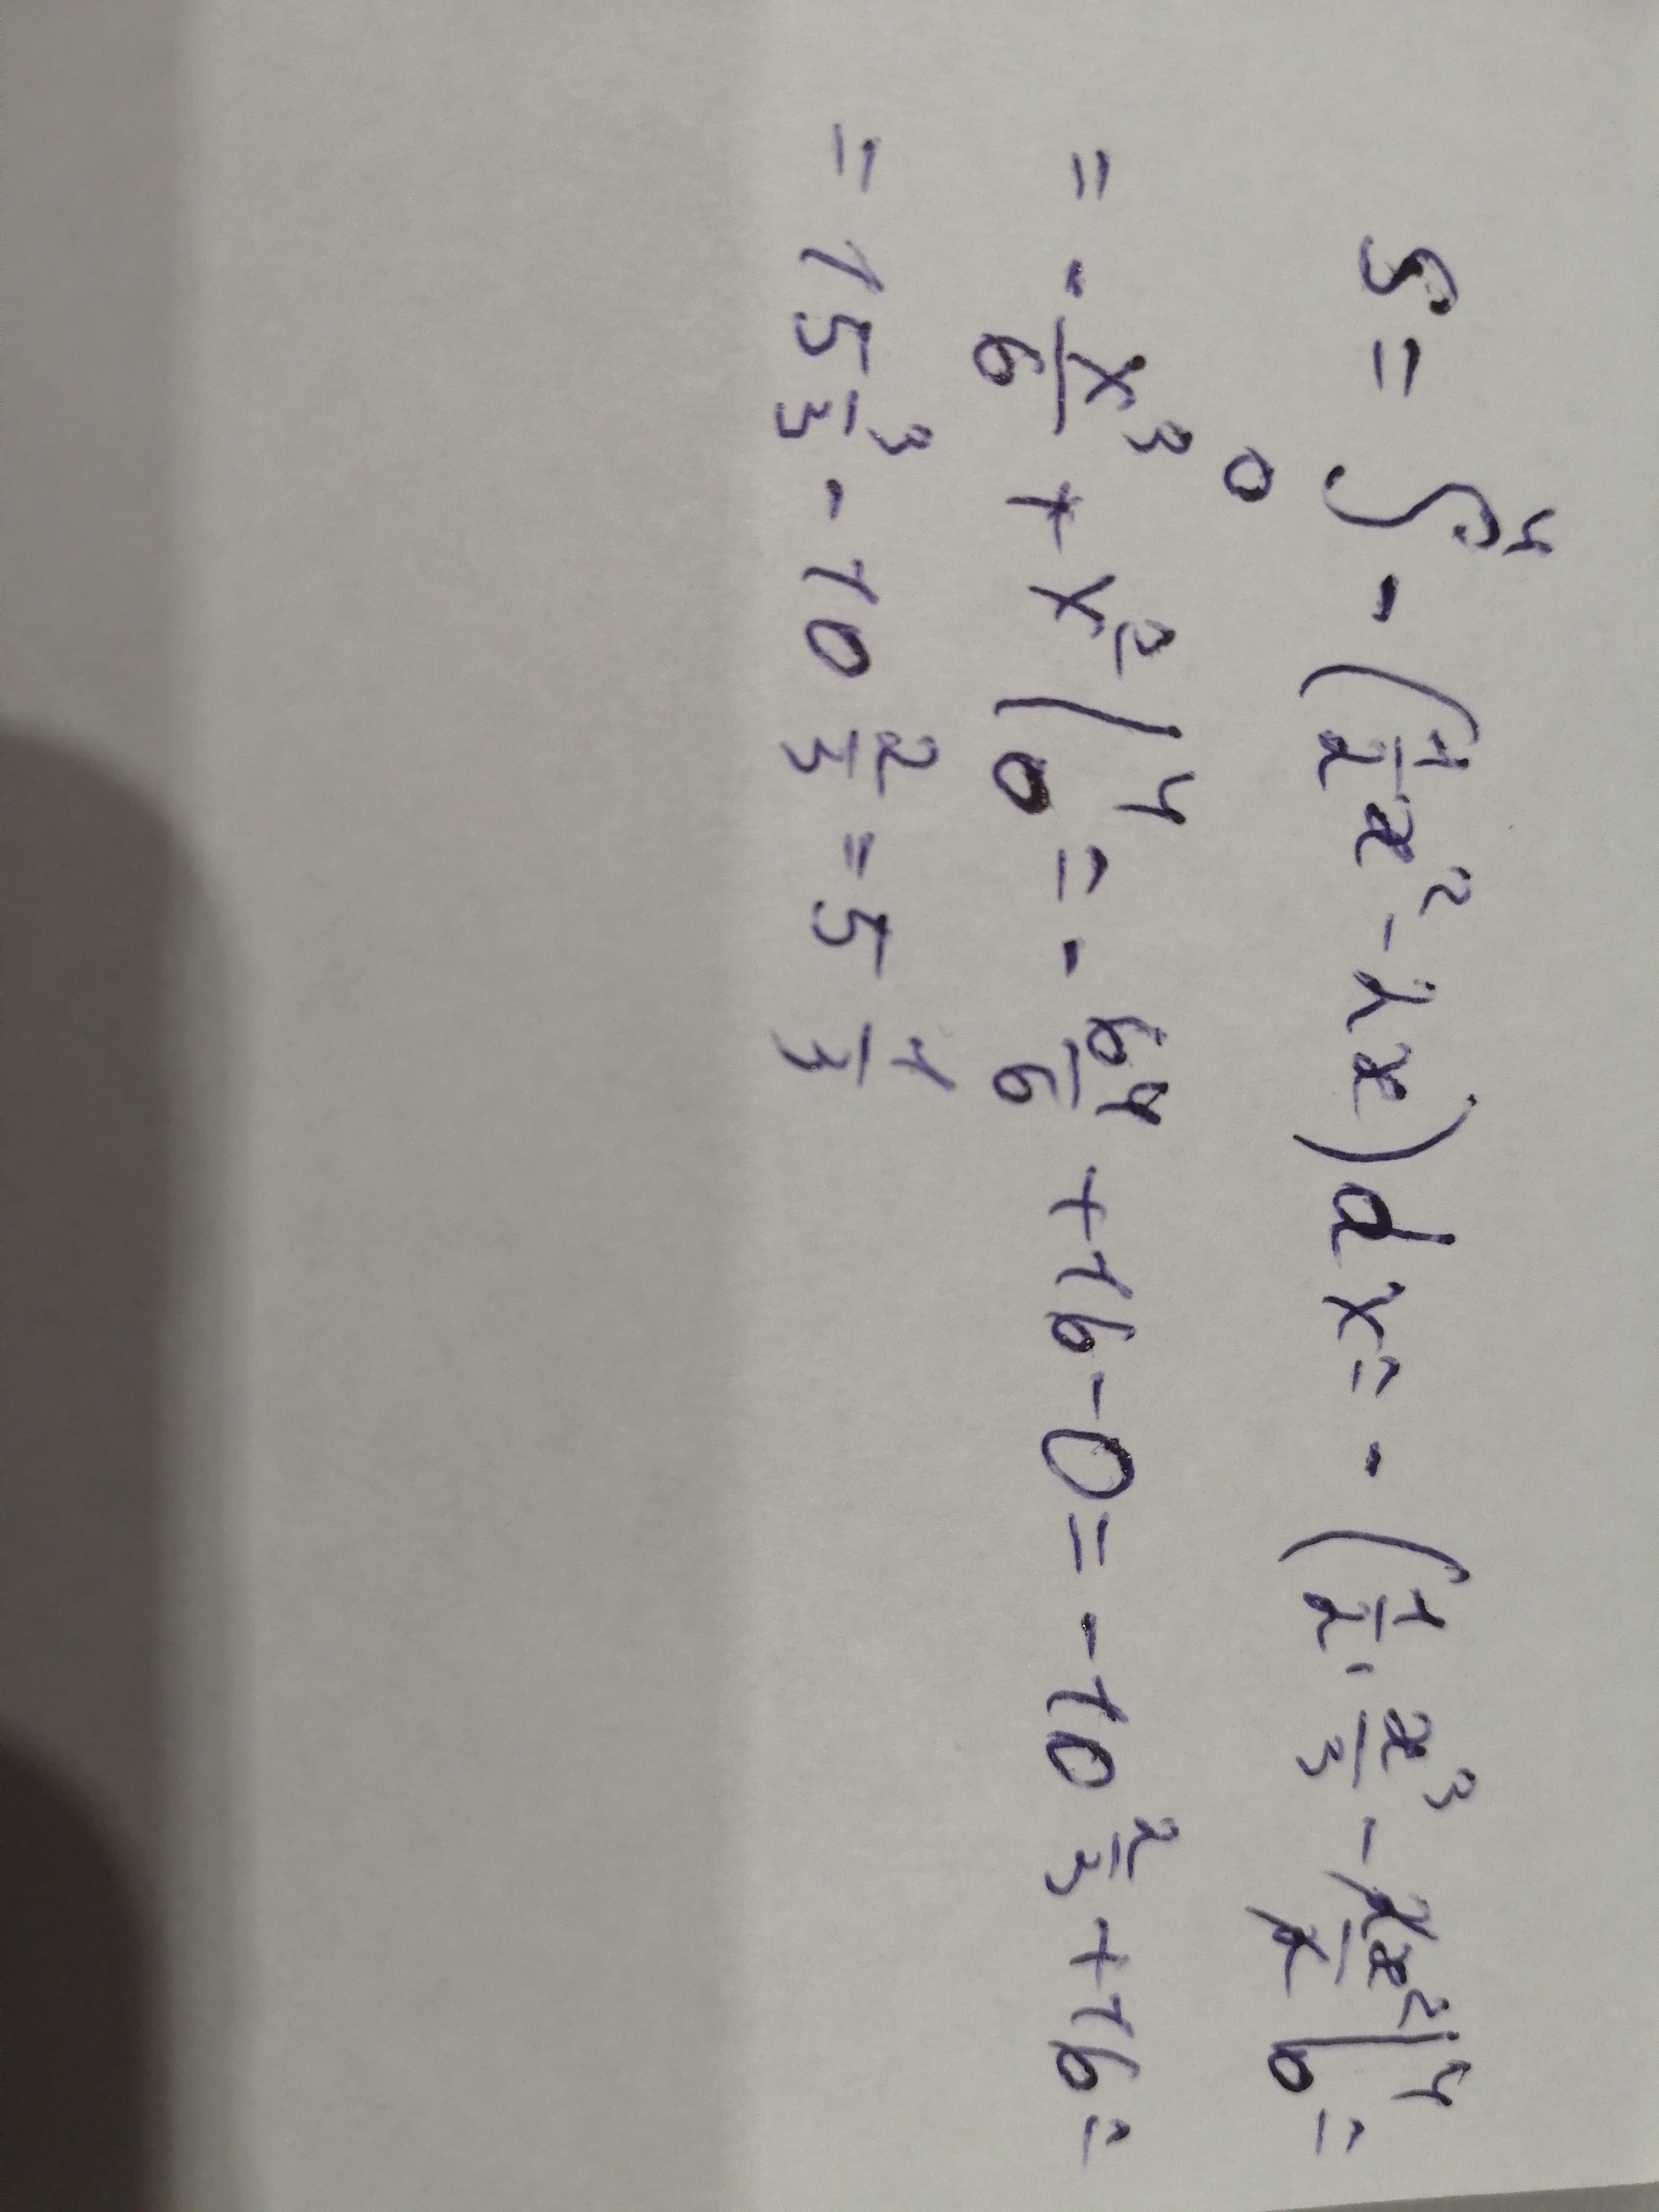 S = ∫₀⁴ - (1/2 x² - 2x) dx = - (1/2 · x³/3 - 2x²/2 |₀⁴ =
= - x³/6 + x² |₀⁴ = - 64/6 + 16 - 0 = - 10 2/3 + 16 =
= 15 3/3 - 10 2/3 = 5 1/3